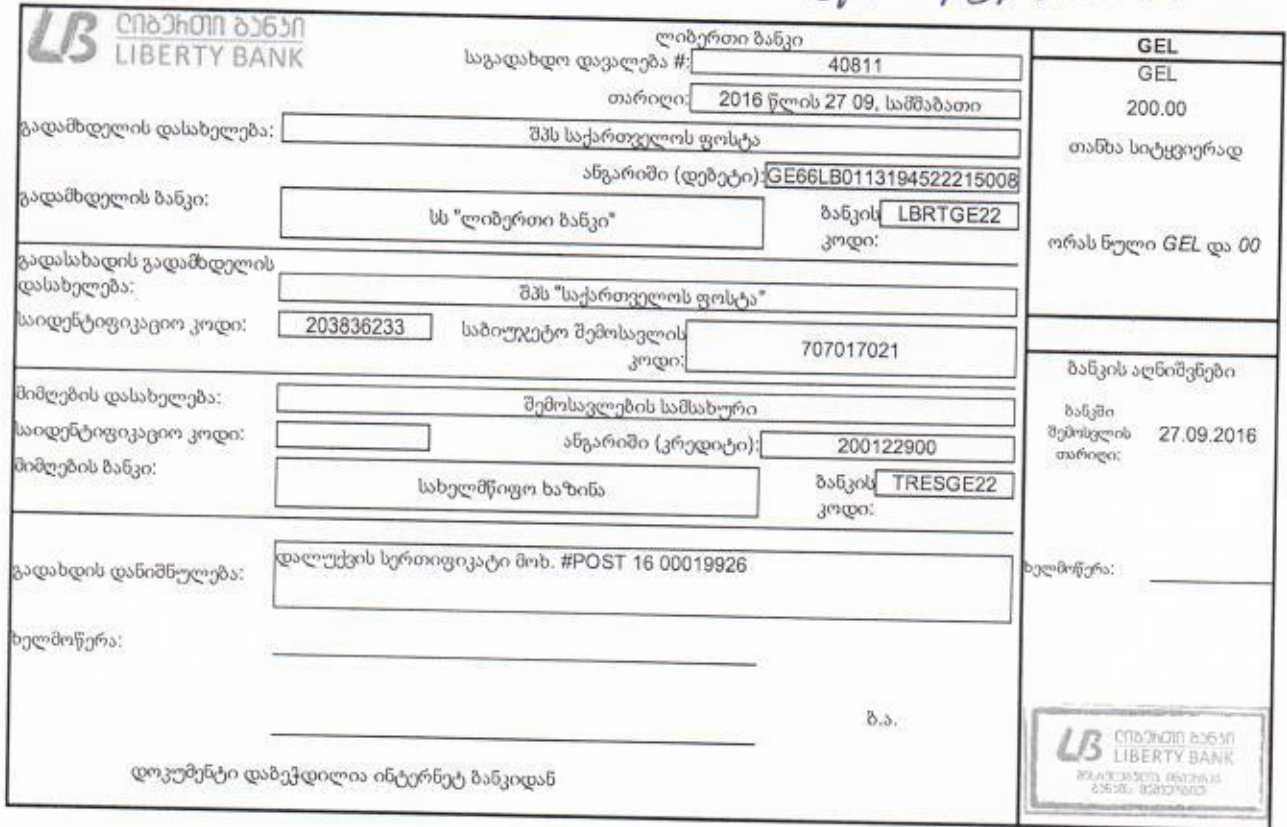 ლიბერთი ბანკი
LIBERTY BANK
ლიბერთი ბანკი
საგადახდო დავალება #: 40811
თარიღი: 2016 წლის 27 09, სამშაბათი
გადამხდელის დასახელება: შპს საქართველოს ფოსტა
ანგარიში (დებეტი): GE66LB0113194522215008
გადამხდელის ბანკი: სს "ლიბერთი ბანკი" ბანკის კოდი: LBRTGE22
გადასახადის გადამხდელის
დასახელება: შპს "საქართველოს ფოსტა"
საიდენტიფიკაციო კოდი: 203836233 საბიუჯეტო შემოსავლის კოდი: 707017021
მიმღების დასახელება: შემოსავლების სამსახური
საიდენტიფიკაციო კოდი: ანგარიში (კრედიტი): 200122900
მიმღების ბანკი: სახელმწიფო ხაზინა ბანკის კოდი: TRESGE22
გადახდის დანიშნულება: დალუქვის სერთიფიკატი მოხ. #POST 16 00019926
ხელმოწერა:
ბ.ა.
დოკუმენტი დაბეჭდილია ინტერნეტ ბანკიდან
GEL
GEL
200.00
თანხა სიტყვიერად
ორას ნული GEL და 00
ბანკის აღნიშვნები
ბანკში
შემოსვლის 27.09.2016
თარიღი:
ხელმოწერა:
ლიბერთი ბანკი
LIBERTY BANK